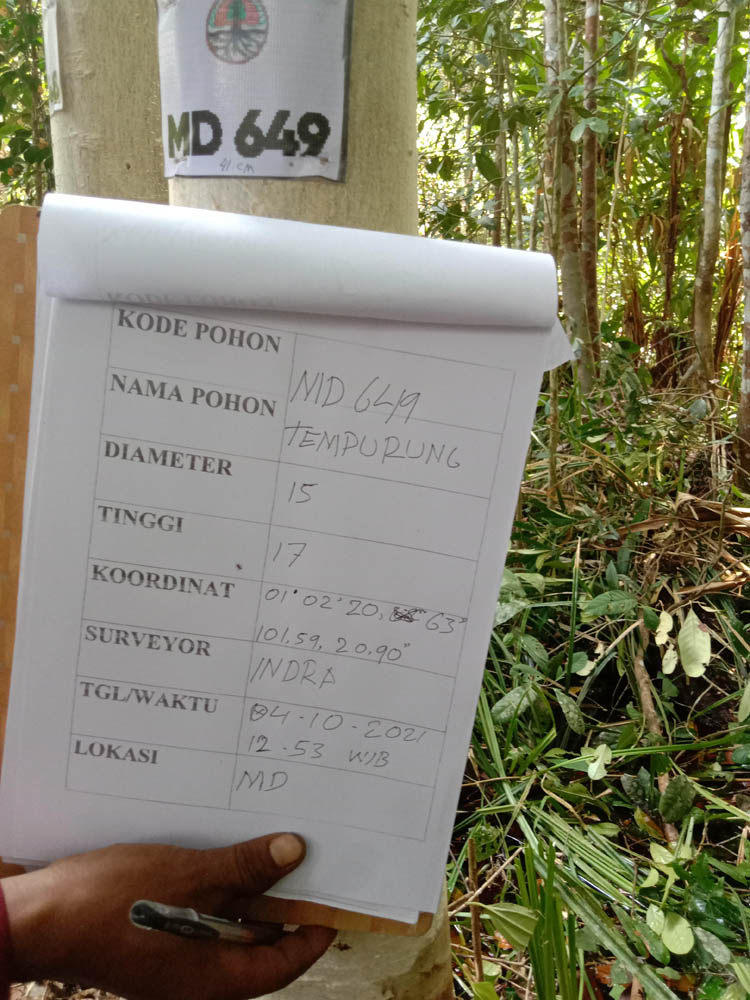 MD 649
41 cm
KODE POHON
MD 649
NAMA POHON
TEMPURUNG
DIAMETER
15
TINGGI
17
KOORDINAT
01° 02' 20, 63"
101.59, 20,90"
SURVEYOR
INDRA
TGL/WAKTU
04-10-2021
12.53 WIB
LOKASI
MD